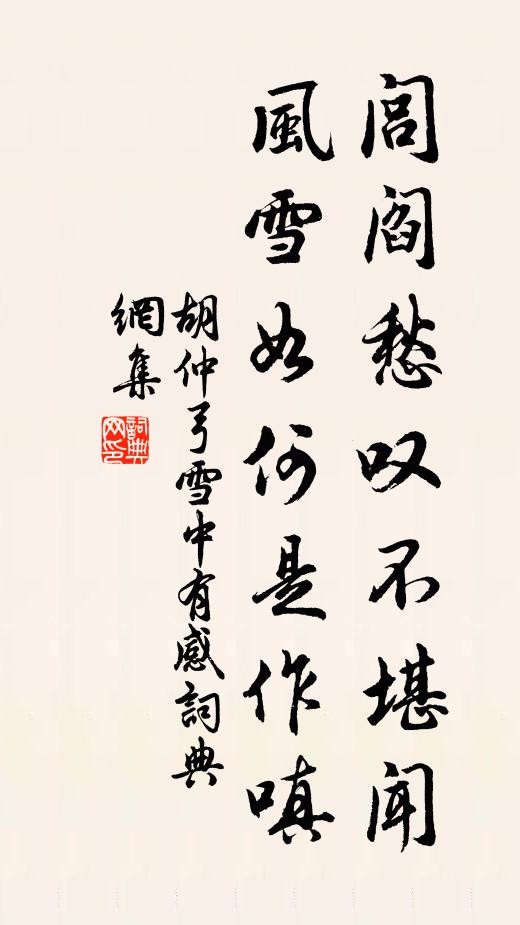 闾阎愁叹不堪闻
風雪如何是作嗔
胡仲弓雪中有感詞典
網集
詞典网印